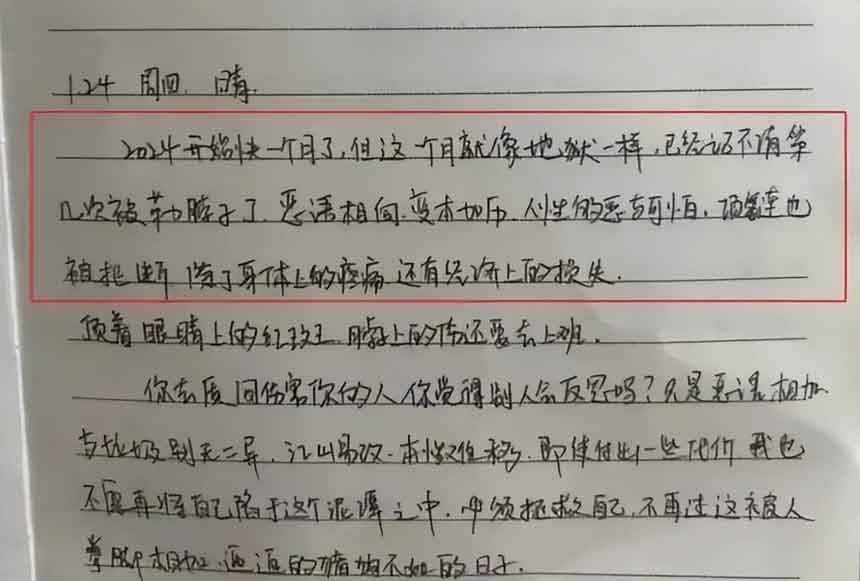 1.24 周四. 晴.
2024开始快一个月了,但这一个月就像地狱一样,已经记不清第
几次被勒脖子了.恶语相向.变本加厉.人性的恶与可怕.项链也
被扯断 除了身体上的疼痛 还有经济上的损失.
顶着眼睛上的红斑 脖子上的伤还要去上班.
你去质问伤害你的人 你觉得别人会反思吗?只是恶语相加
与垃圾别无二异.江山易改.本性难移.即使付出一些代价 我也
不愿再将自己陷于这个泥潭之中.必须拯救自己,不再过这被人
拳脚相加.的猪狗不如的日子.